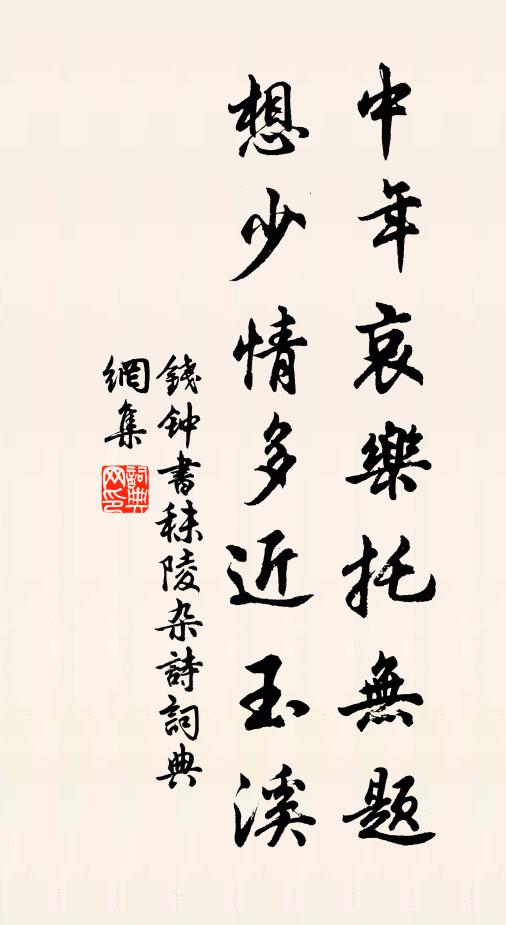 中年哀樂托無题
想少情多近玉溪
錢钟書秣陵杂詩詞典
網集
詞典網印